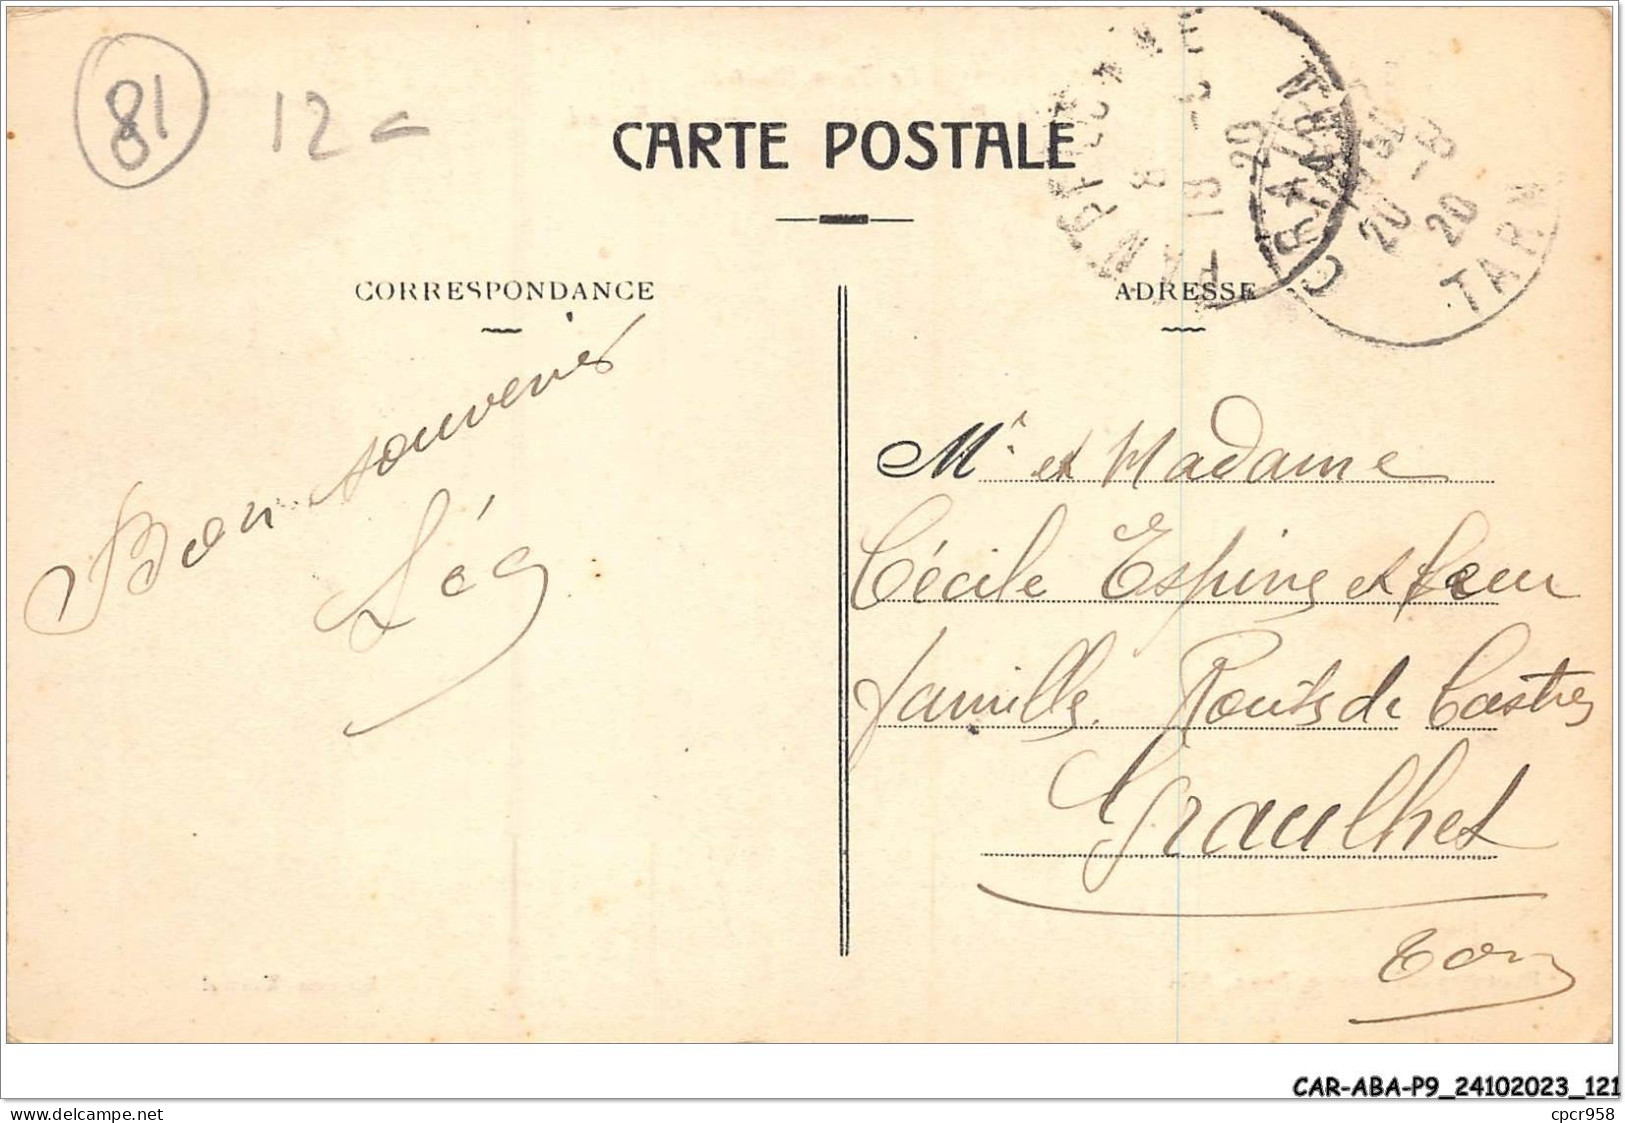 81
12
CARTE POSTALE
CORRESPONDANCE
ADRESSE
Bon souvenir
Mr. et Madame
Cécile Espine et leur
famille. Route de Castres
Graulhet
Tarn
20 -8
20
TARN
CAR-ABA-P9_24102023_121
delcampe.net
cpcr958